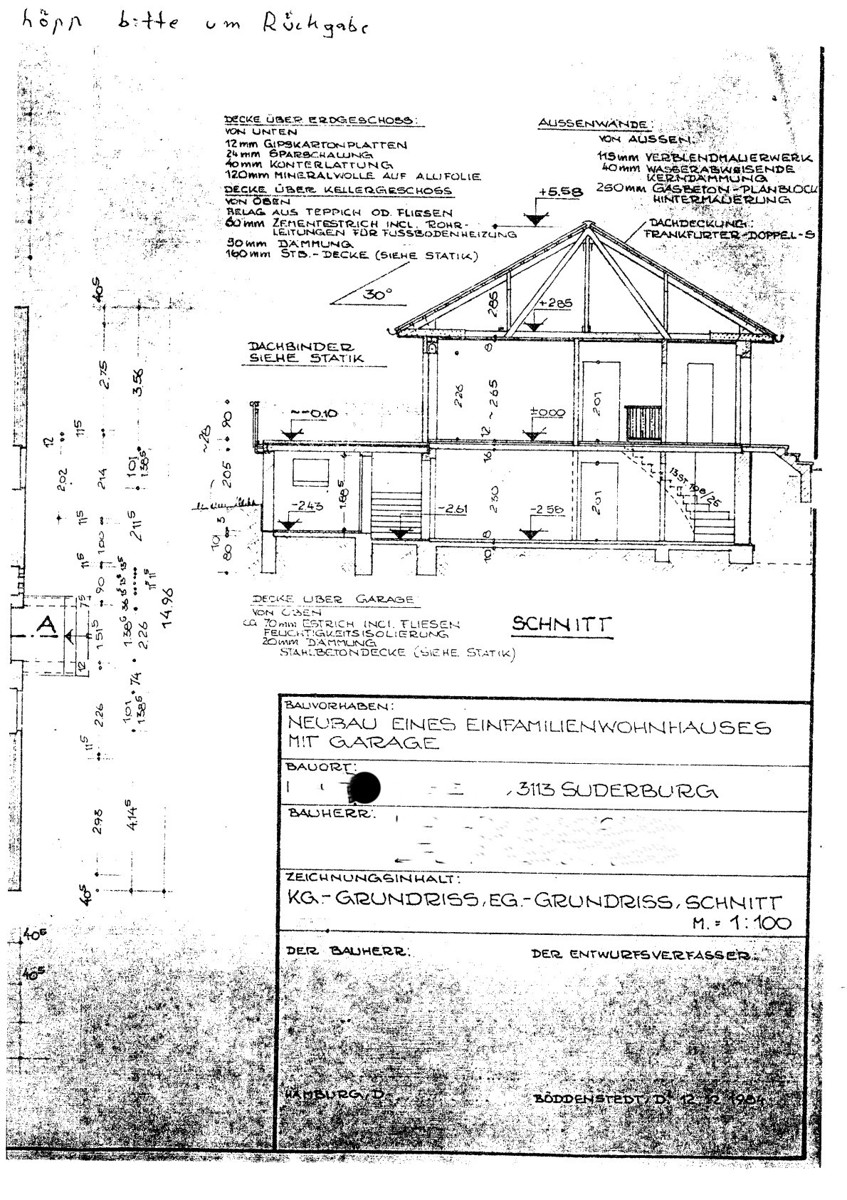 höpp bitte um Rückgabe
DECKE ÜBER ERDGESCHOSS:
VON UNTEN
12mm GIPSKARTONPLATTEN
24mm SPARSCHALUNG
40mm KONTERLATTUNG
120mm MINERALWOLLE AUF ALUFOLIE
DECKE ÜBER KELLERGESCHOSS
VON OBEN
BELAG AUS TEPPICH OD. FLIESEN
60mm ZEMENTESTRICH INCL. ROHR-
LEITUNGEN FÜR FUSSBODENHEIZUNG
50mm DÄMMUNG
160mm STB.-DECKE (SIEHE STATIK)
AUSSENWÄNDE:
VON AUSSEN:
115mm VERBLENDMAUERWERK
40mm WASSERABWEISENDE
KERNDÄMMUNG
250mm GASBETON-PLANBLOCK
HINTERMAUERUNG
DACHDECKUNG:
FRANKFURTER-DOPPEL-S
+5.58
30°
DACHBINDER
SIEHE STATIK
285
+2.85
8
226
12 ~265
201
~-0.10
±0.00
~25
90
205
3
10
80
16
230
201
13 ST 198/26
188⁵
-2.43
-2.61
-2.56
10 8
40⁵
2.75
3.56
12
11⁵
2.02
2.14
1.01
1.38⁵
11⁵
1.00
2.11⁵
11⁵
90
75
A
1.51⁵
2.26
14.96
12
74
2.26
1.01
1.38⁵
11⁵
2.93
4.14⁵
40⁵
40⁵
40⁵
DECKE ÜBER GARAGE
VON OBEN
CA 70mm ESTRICH INCL. FLIESEN
FEUCHTIGKEITSISOLIERUNG
20mm DÄMMUNG
STAHLBETONDECKE (SIEHE STATIK)
SCHNITT
BAUVORHABEN:
NEUBAU EINES EINFAMILIENWOHNHAUSES
MIT GARAGE
BAUORT:
, 3113 SUDERBURG
BAUHERR:
ZEICHNUNGSINHALT:
KG.-GRUNDRISS, EG.-GRUNDRISS, SCHNITT
M. = 1:100
DER BAUHERR:
DER ENTWURFSVERFASSER:
HAMBURG, D
BÖDDENSTEDT, D. 12.12.1984